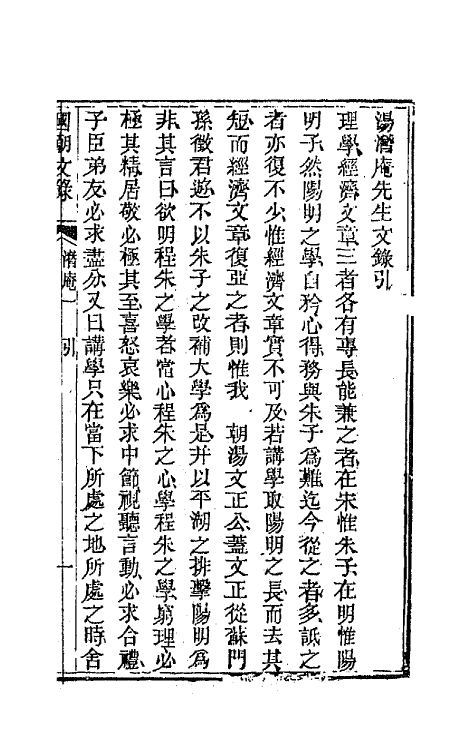 湯潛庵先生文錄引
理學經濟文章三者各有專長能兼之者在宋惟朱子在明惟陽
明子然陽明之學自矜心得務與朱子爲難迄今從之者多詆之
者亦復不少惟經濟文章實不可及若講學取陽明之長而去其
短而經濟文章復亞之者則惟我　朝湯文正公蓋文正從蘇門
孫徵君遊不以朱子之改補大學爲是并以平湖之排擊陽明爲
非其言曰欲明程朱之學者當心程朱之心學程朱之學窮理必
極其精居敬必極其至喜怒哀樂必求中節視聽言動必求合禮
子臣弟友必求盡分又曰講學只在當下所處之地所處之時舍
國朝文錄　潛庵　引　一